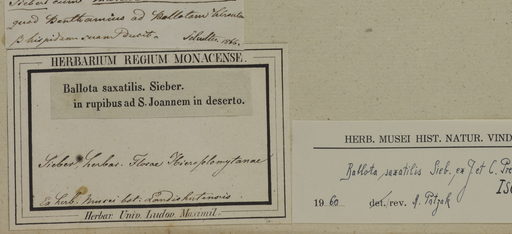 quod Benthamius ad Ballotam hirsutam
β hispidam cum
HERBARIUM REGIUM MONACENSE.
Ballota saxatilis. Sieber.
in rupibus ad S. Joannem in deserto.
Sieber, herbar. Florae Hierosolymytanae
Ex herb. Musei bot. Landishutensis
Herbar. Univ. Ludov. Maximil.
HERB. MUSEI HIST. NATUR. VIND
Ballota saxatilis Sieb. ex J. et C. Pre
1960 det./rev. A. Patzak